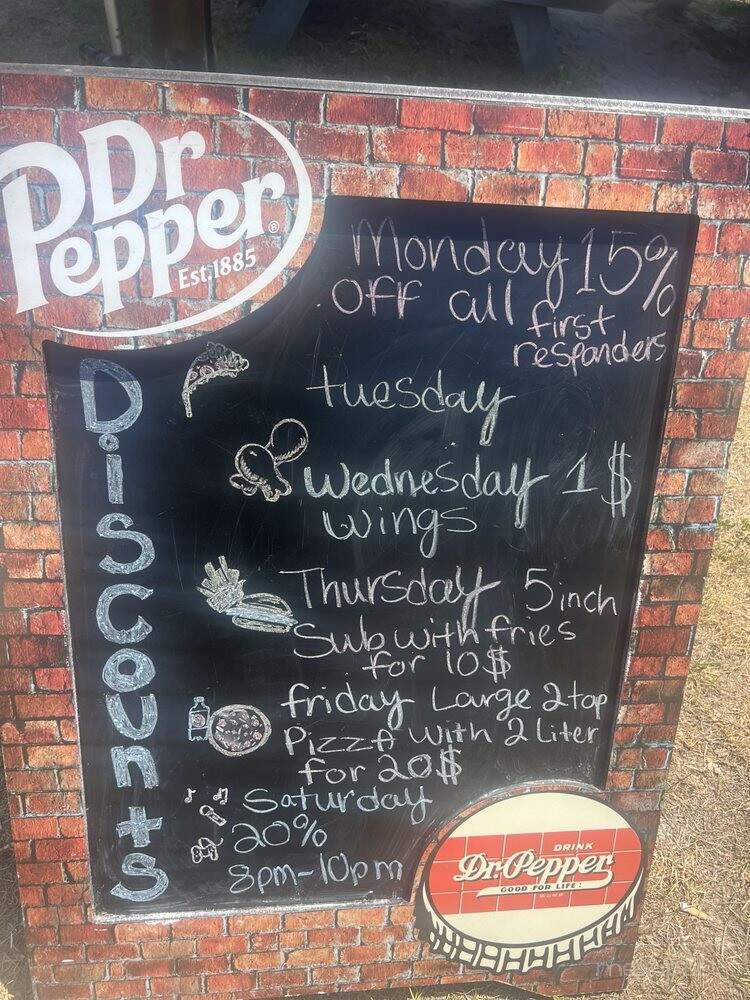 Dr
Pepper®
Est. 1885
Discounts
Monday 15%
off all first
responders
tuesday
Wednesday 1$
wings
Thursday 5inch
Sub with fries
for 10$
friday Large 2top
Pizza with 2 Liter
for 20$
Saturday
20%
8pm-10pm
DRINK
Dr.Pepper
GOOD FOR LIFE!